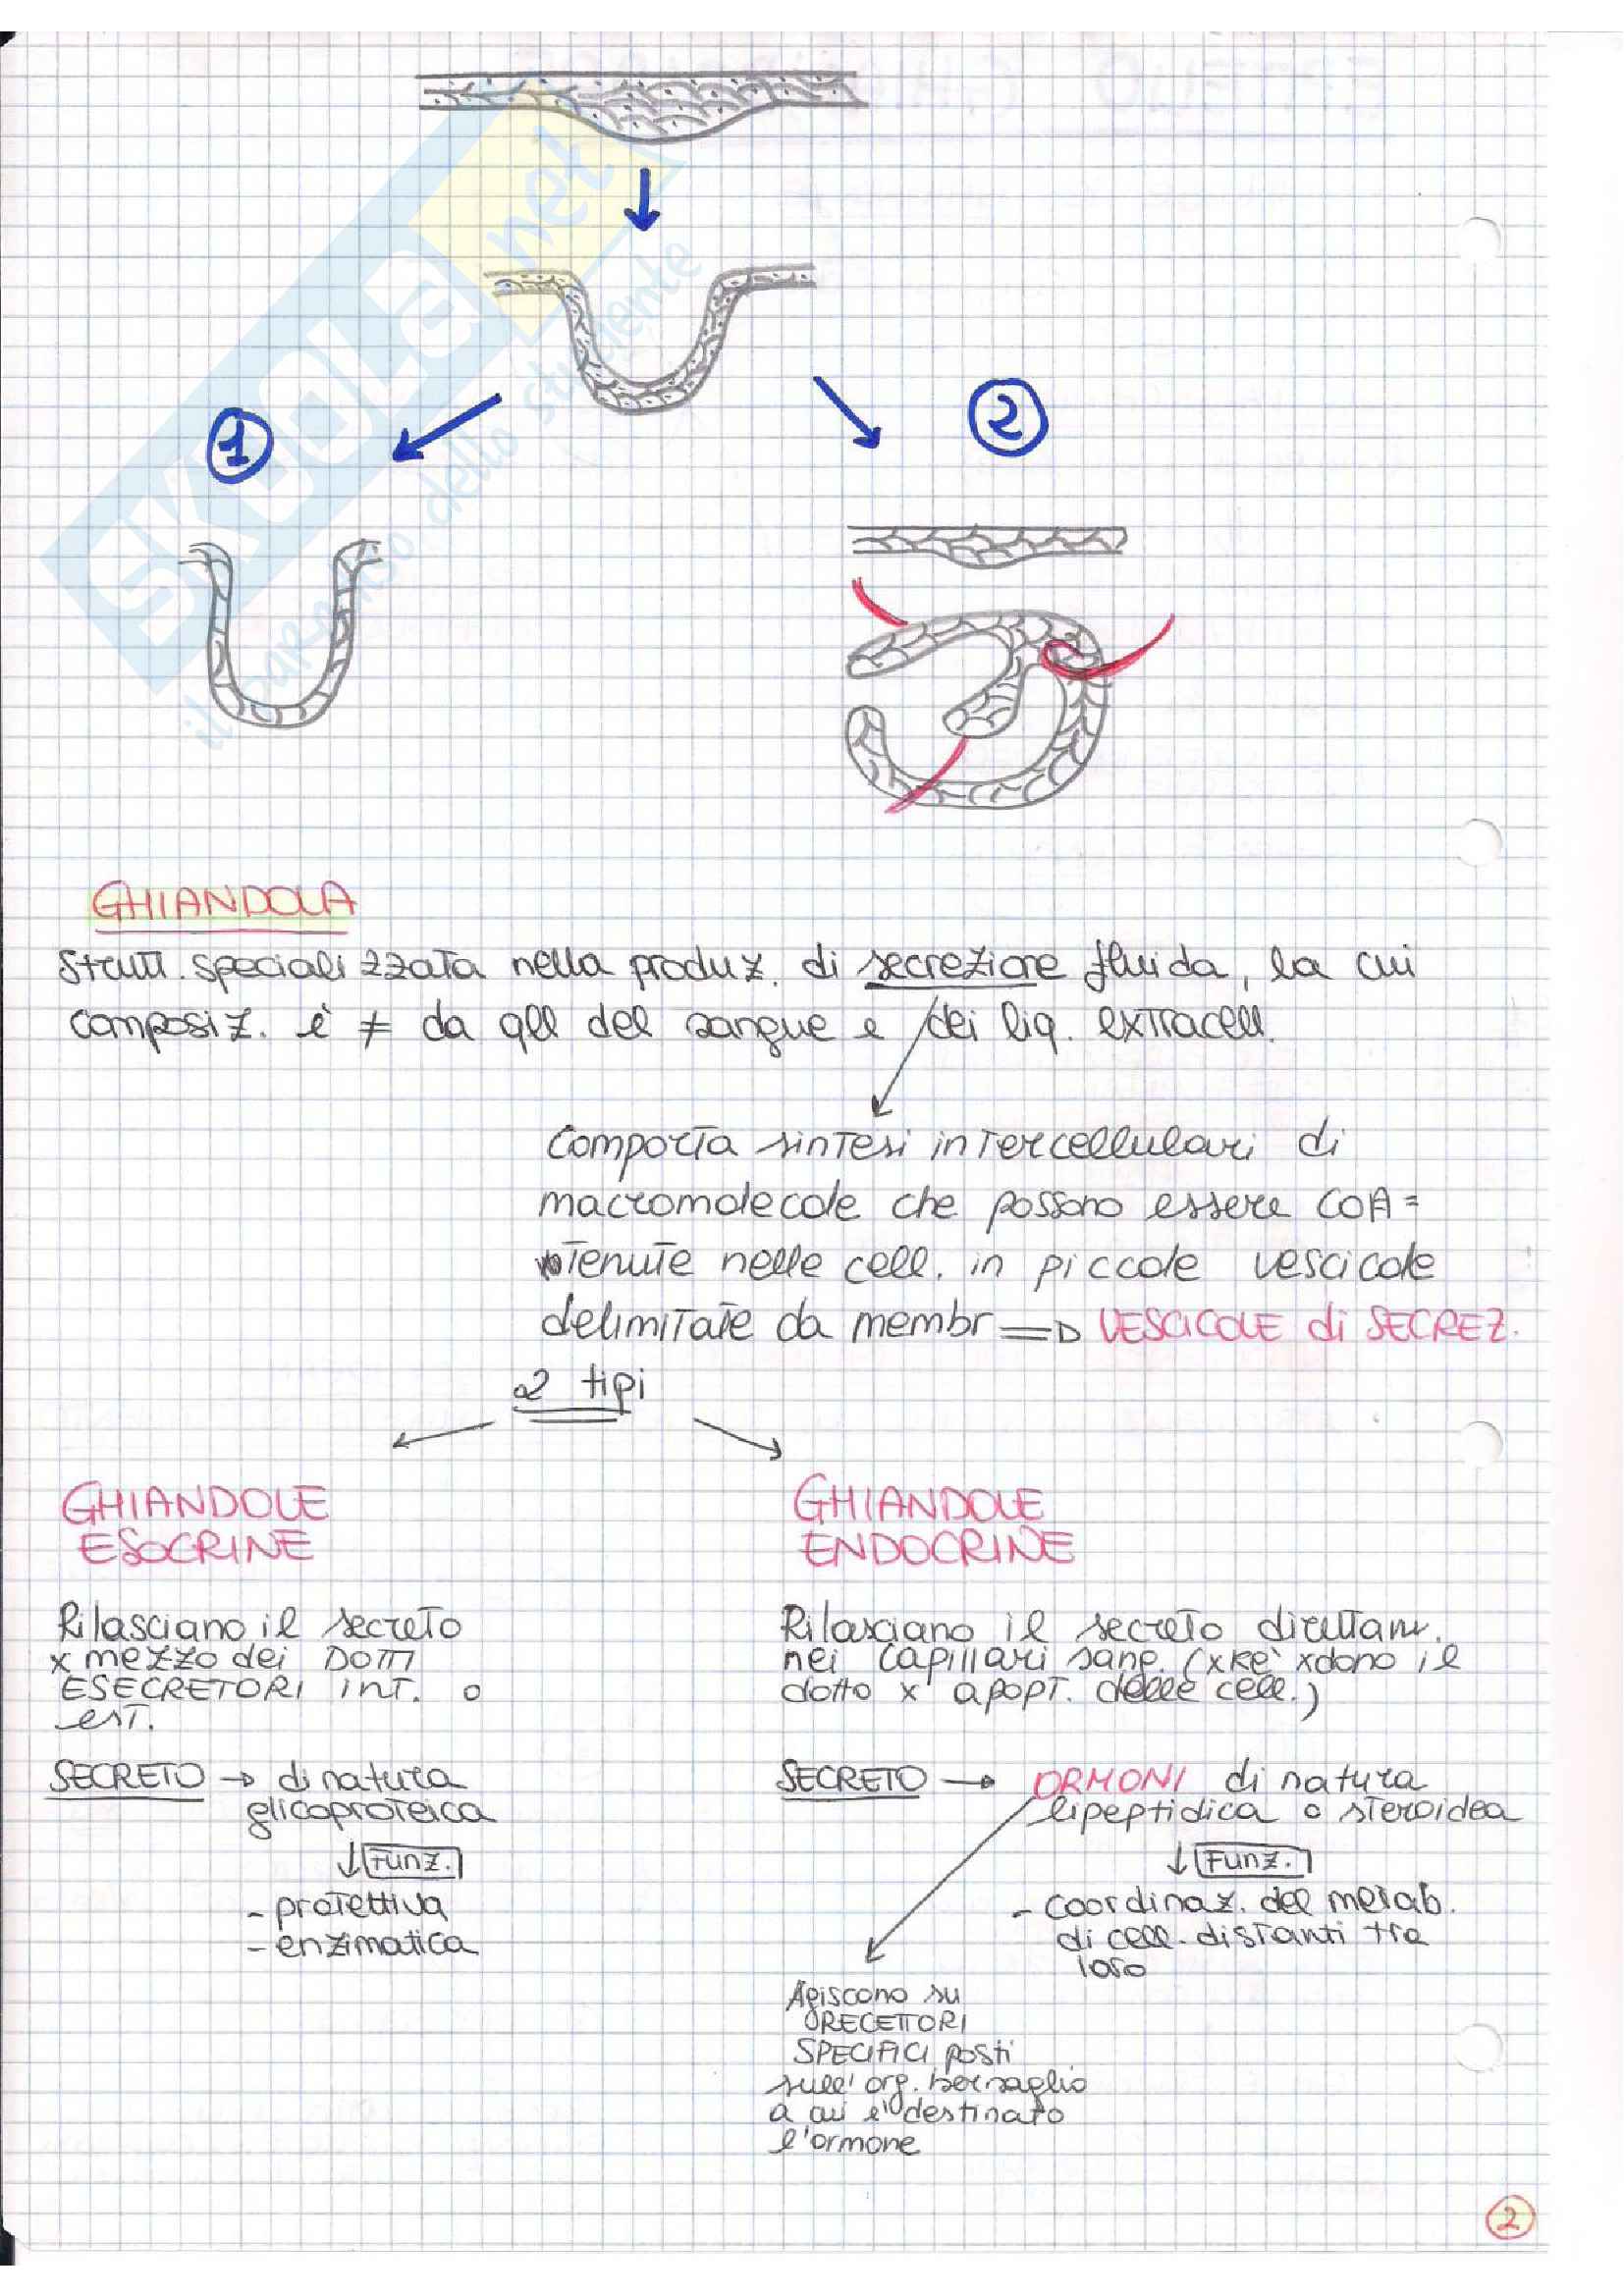 SKUOLA.net
il paradiso dello studente
1
2
GHIANDOLA
Strutt. specializzata nella produz. di secrezione fluida, la cui
composiz. è ≠ da qll del sangue e dei liq. extracell.
Comporta sintesi intercellulari di
macromolecole che possono essere con=
tenute nelle cell. in piccole vescicole
delimitate da membr => VESCICOLE di SECREZ.
2 tipi
GHIANDOLE
ESOCRINE
Rilasciano il secreto
x mezzo dei DOTTI
ESECRETORI INT. o
est.
SECRETO → di natura
glicoproteica
↓ Funz.
- protettiva
- enzimatica
GHIANDOLE
ENDOCRINE
Rilasciano il secreto direttam.
nei capillari sang. (xkè xdono il
dotto x apopt. delle cell.)
SECRETO → ORMONI di natura
lipeptidica o steroidea
↓ Funz.
- coordinaz. del metab.
di cell. distanti tra
loro
Agiscono su
RECETTORI
SPECIFICI posti
sull' org. bersaglio
a cui è destinato
l'ormone
2